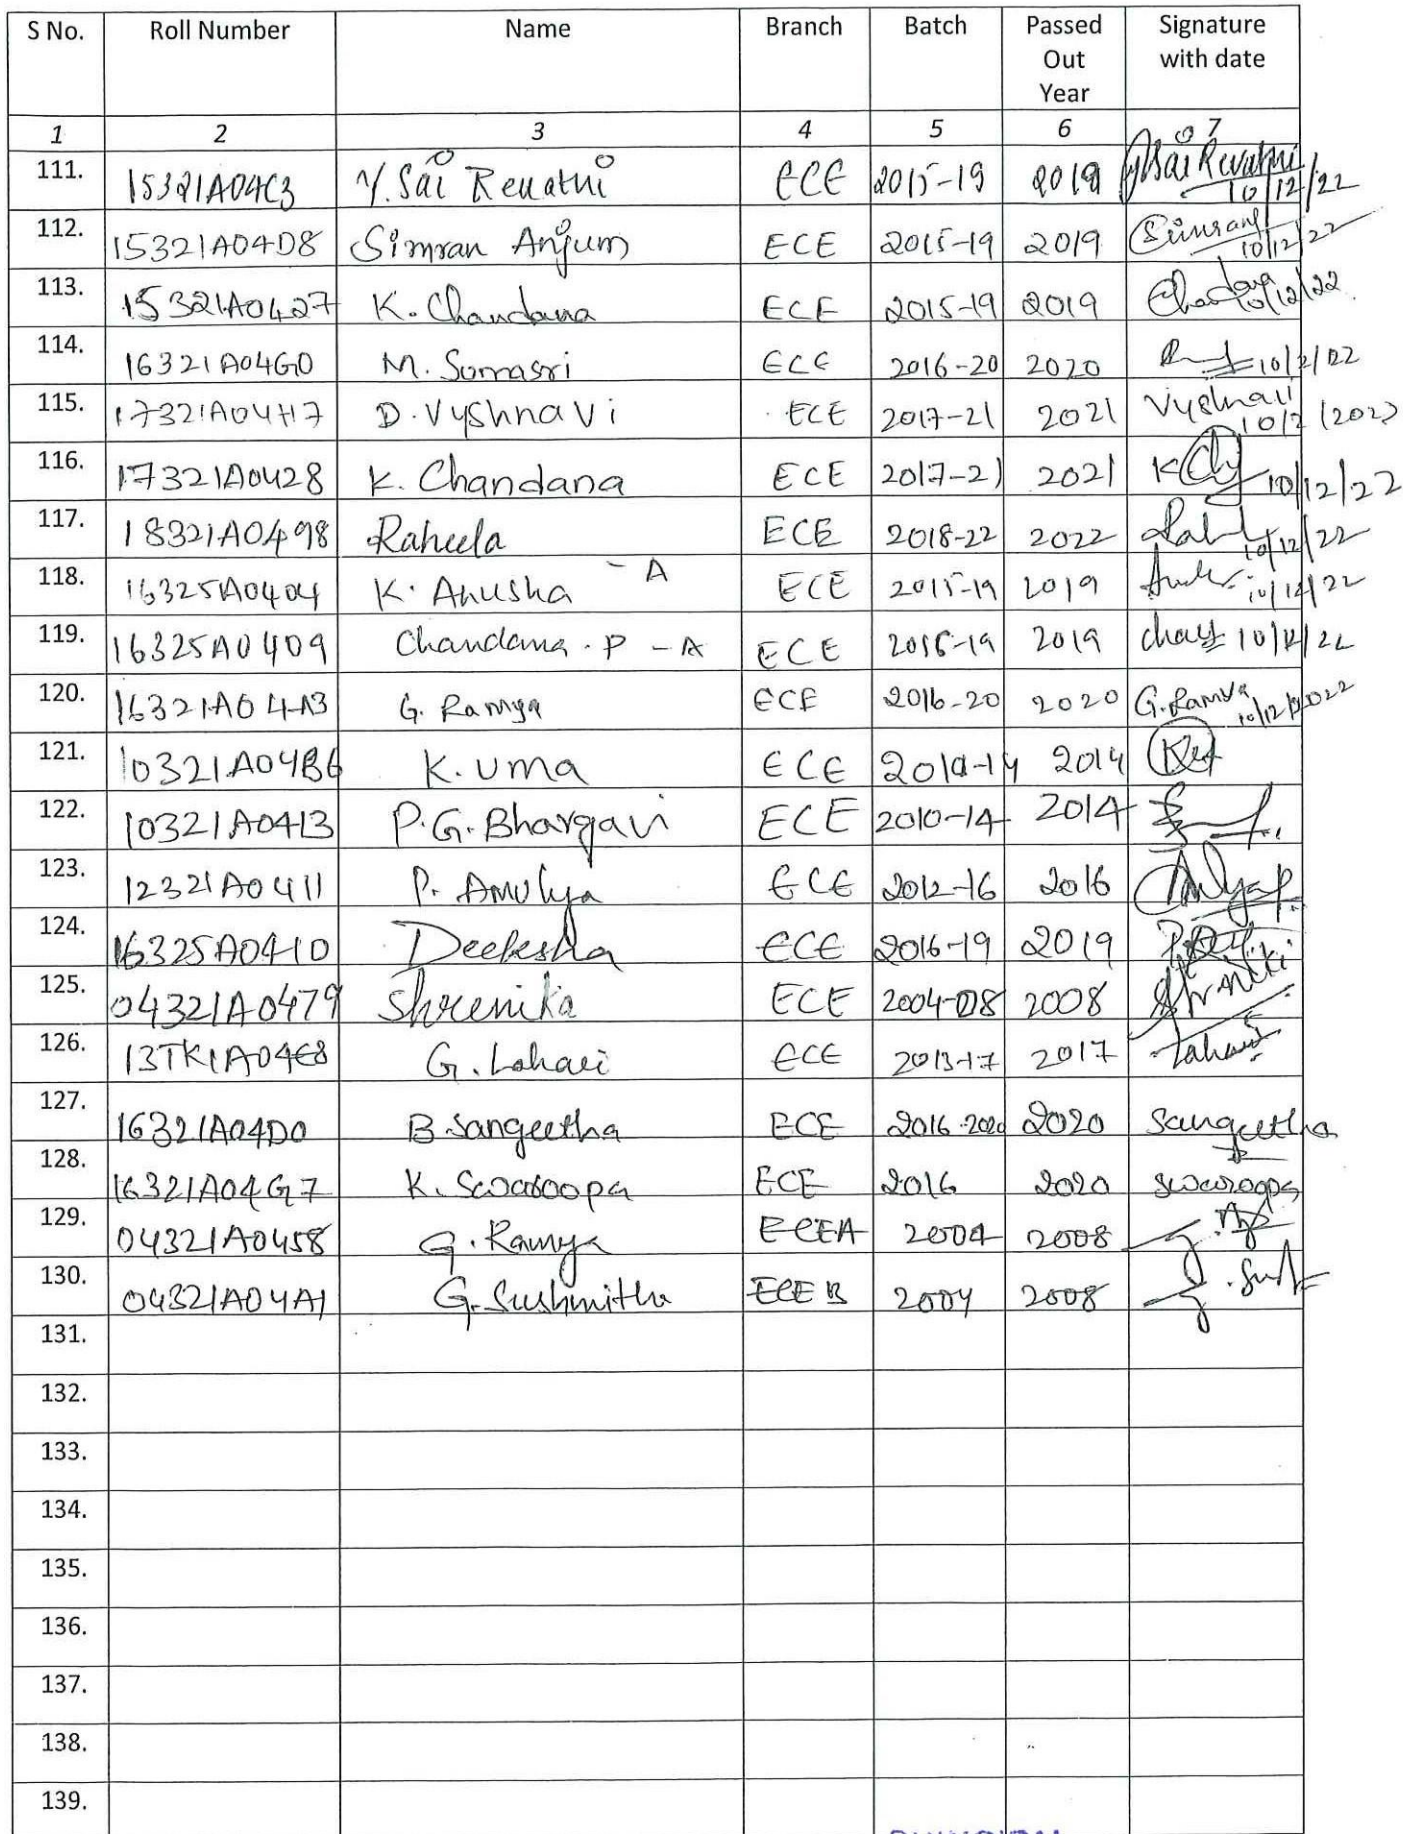 S No. Roll Number Name Branch Batch Passed Out Year Signature with date
1 2 3 4 5 6 7
111. 15321A04C3 Y. Sai Revathi ECE 2015-19 2019 Y Sai Revathi 10/12/22
112. 15321A04D8 Simran Anjum ECE 2015-19 2019 Simran 10/12/22
113. 15321A0427 K. Chandana ECE 2015-19 2019 Chandana 10/12/22
114. 16321A04G0 M. Somasri ECE 2016-20 2020
115. 17321A04H7 D. Vyshnavi ECE 2017-21 2021 Vyshnavi
116. 17321A0428 K. Chandana ECE 2017-21 2021 10/12/22
117. 18321A0498 Raheela ECE 2018-22 2022 10/12/22
118. 16325A0404 K. Anusha - A ECE 2015-19 2019 10/12/22
119. 16325A0409 Chandana. P - A ECE 2016-19 2019
120. 16321A04A3 G. Ramya ECE 2016-20 2020 G. Ramya 10/12/2022
121. 10321A04B6 K. Uma ECE 2010-14 2014
122. 10321A0413 P.G. Bhargavi ECE 2010-14 2014
123. 12321A0411 P. Amulya ECE 2012-16 2016 Amulya P.
124. 16325A0410 Deekesha ECE 2016-19 2019
125. 04321A0479 Shrenika ECE 2004-08 2008
126. 13TK1A04E8 G. Lahari ECE 2013-17 2017 Lahari
127. 16321A04D0 B Sangeetha ECE 2016-2020 2020 Sangeetha
128. 16321A04G7 K. Swaroopa ECE 2016 2020 Swaroopa
129. 04321A0458 G. Ramya ECE A 2004 2008
130. 04321A04A1 G. Sushmitha ECE B 2004 2008
131.
132.
133.
134.
135.
136.
137.
138.
139.